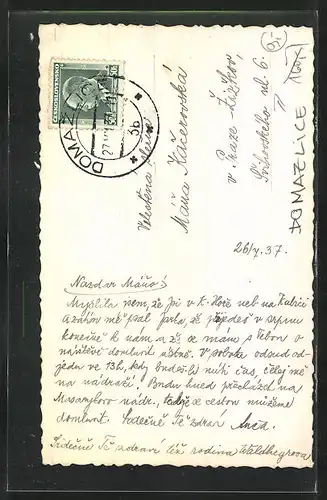 ČESKOSLOVENSKO
DOMAŽ
3b
Velectěná slečna
Máňa Káčerovská
v Praze - Žižkov,
ul. 6.
DOMAŽLICE
26/V. 37.
Nazdar Máňo!
Myslila jsem, že jsi v K. Hoře neb na
a zatím mě psal Jarka, že přijedeš v srpnu
konečně k nám a že se mám s Tebou o
návštěvě domluvit ústně. V sobotu odsud od-
jedu ve 13h, kdy budeš-li míti čas, čekej mě
na nádraží. Budu hned přecházet na
Masarykovo nádr., takže se cestou můžeme
domluvit. Srdečně Tě zdraví
Srdečně Tě zdraví též rodina